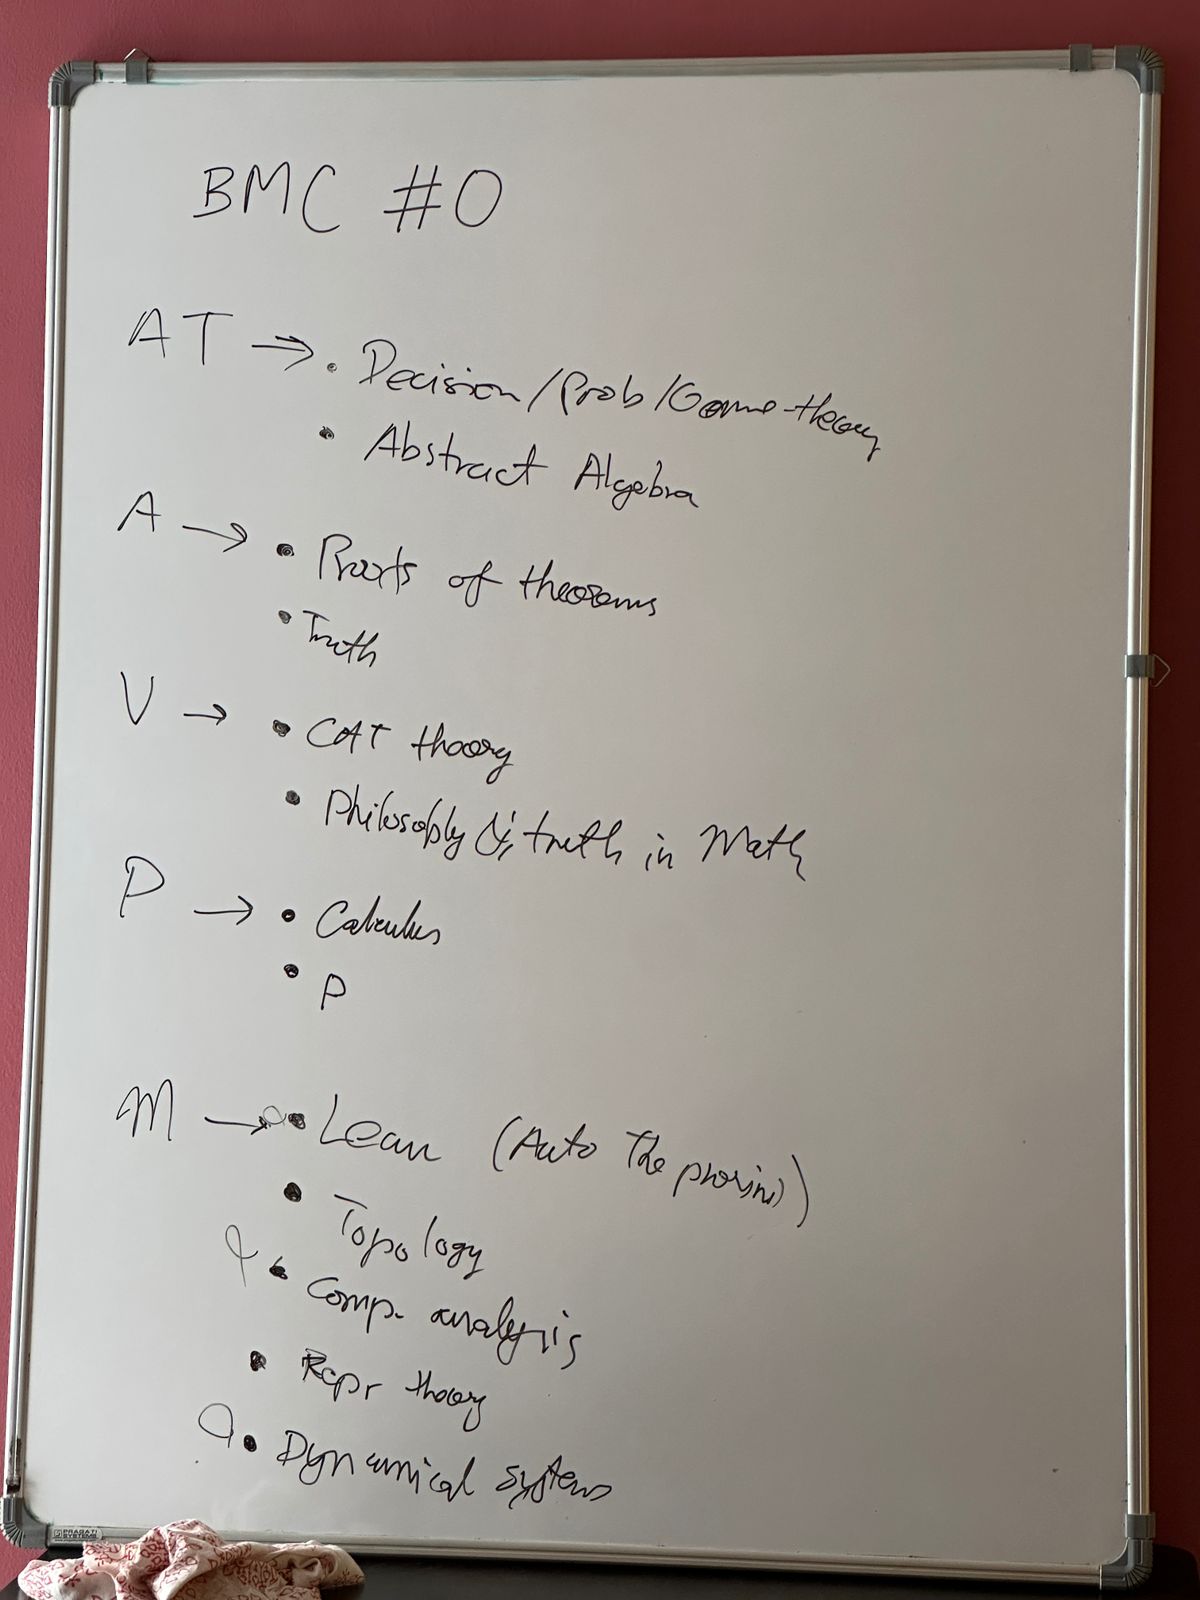 BMC #0
AT → • Decision/Prob/Game-theory
• Abstract Algebra
A → • Proofs of theorems
• Truth
V → • CAT theory
• Philosophy & truth in Math
P → • Calculus
• P
M → • Lean (Auto The proving)
• Topology
• Comp. analysis
• Repr theory
• Dynamical systems
PRAGATI SYSTEMS